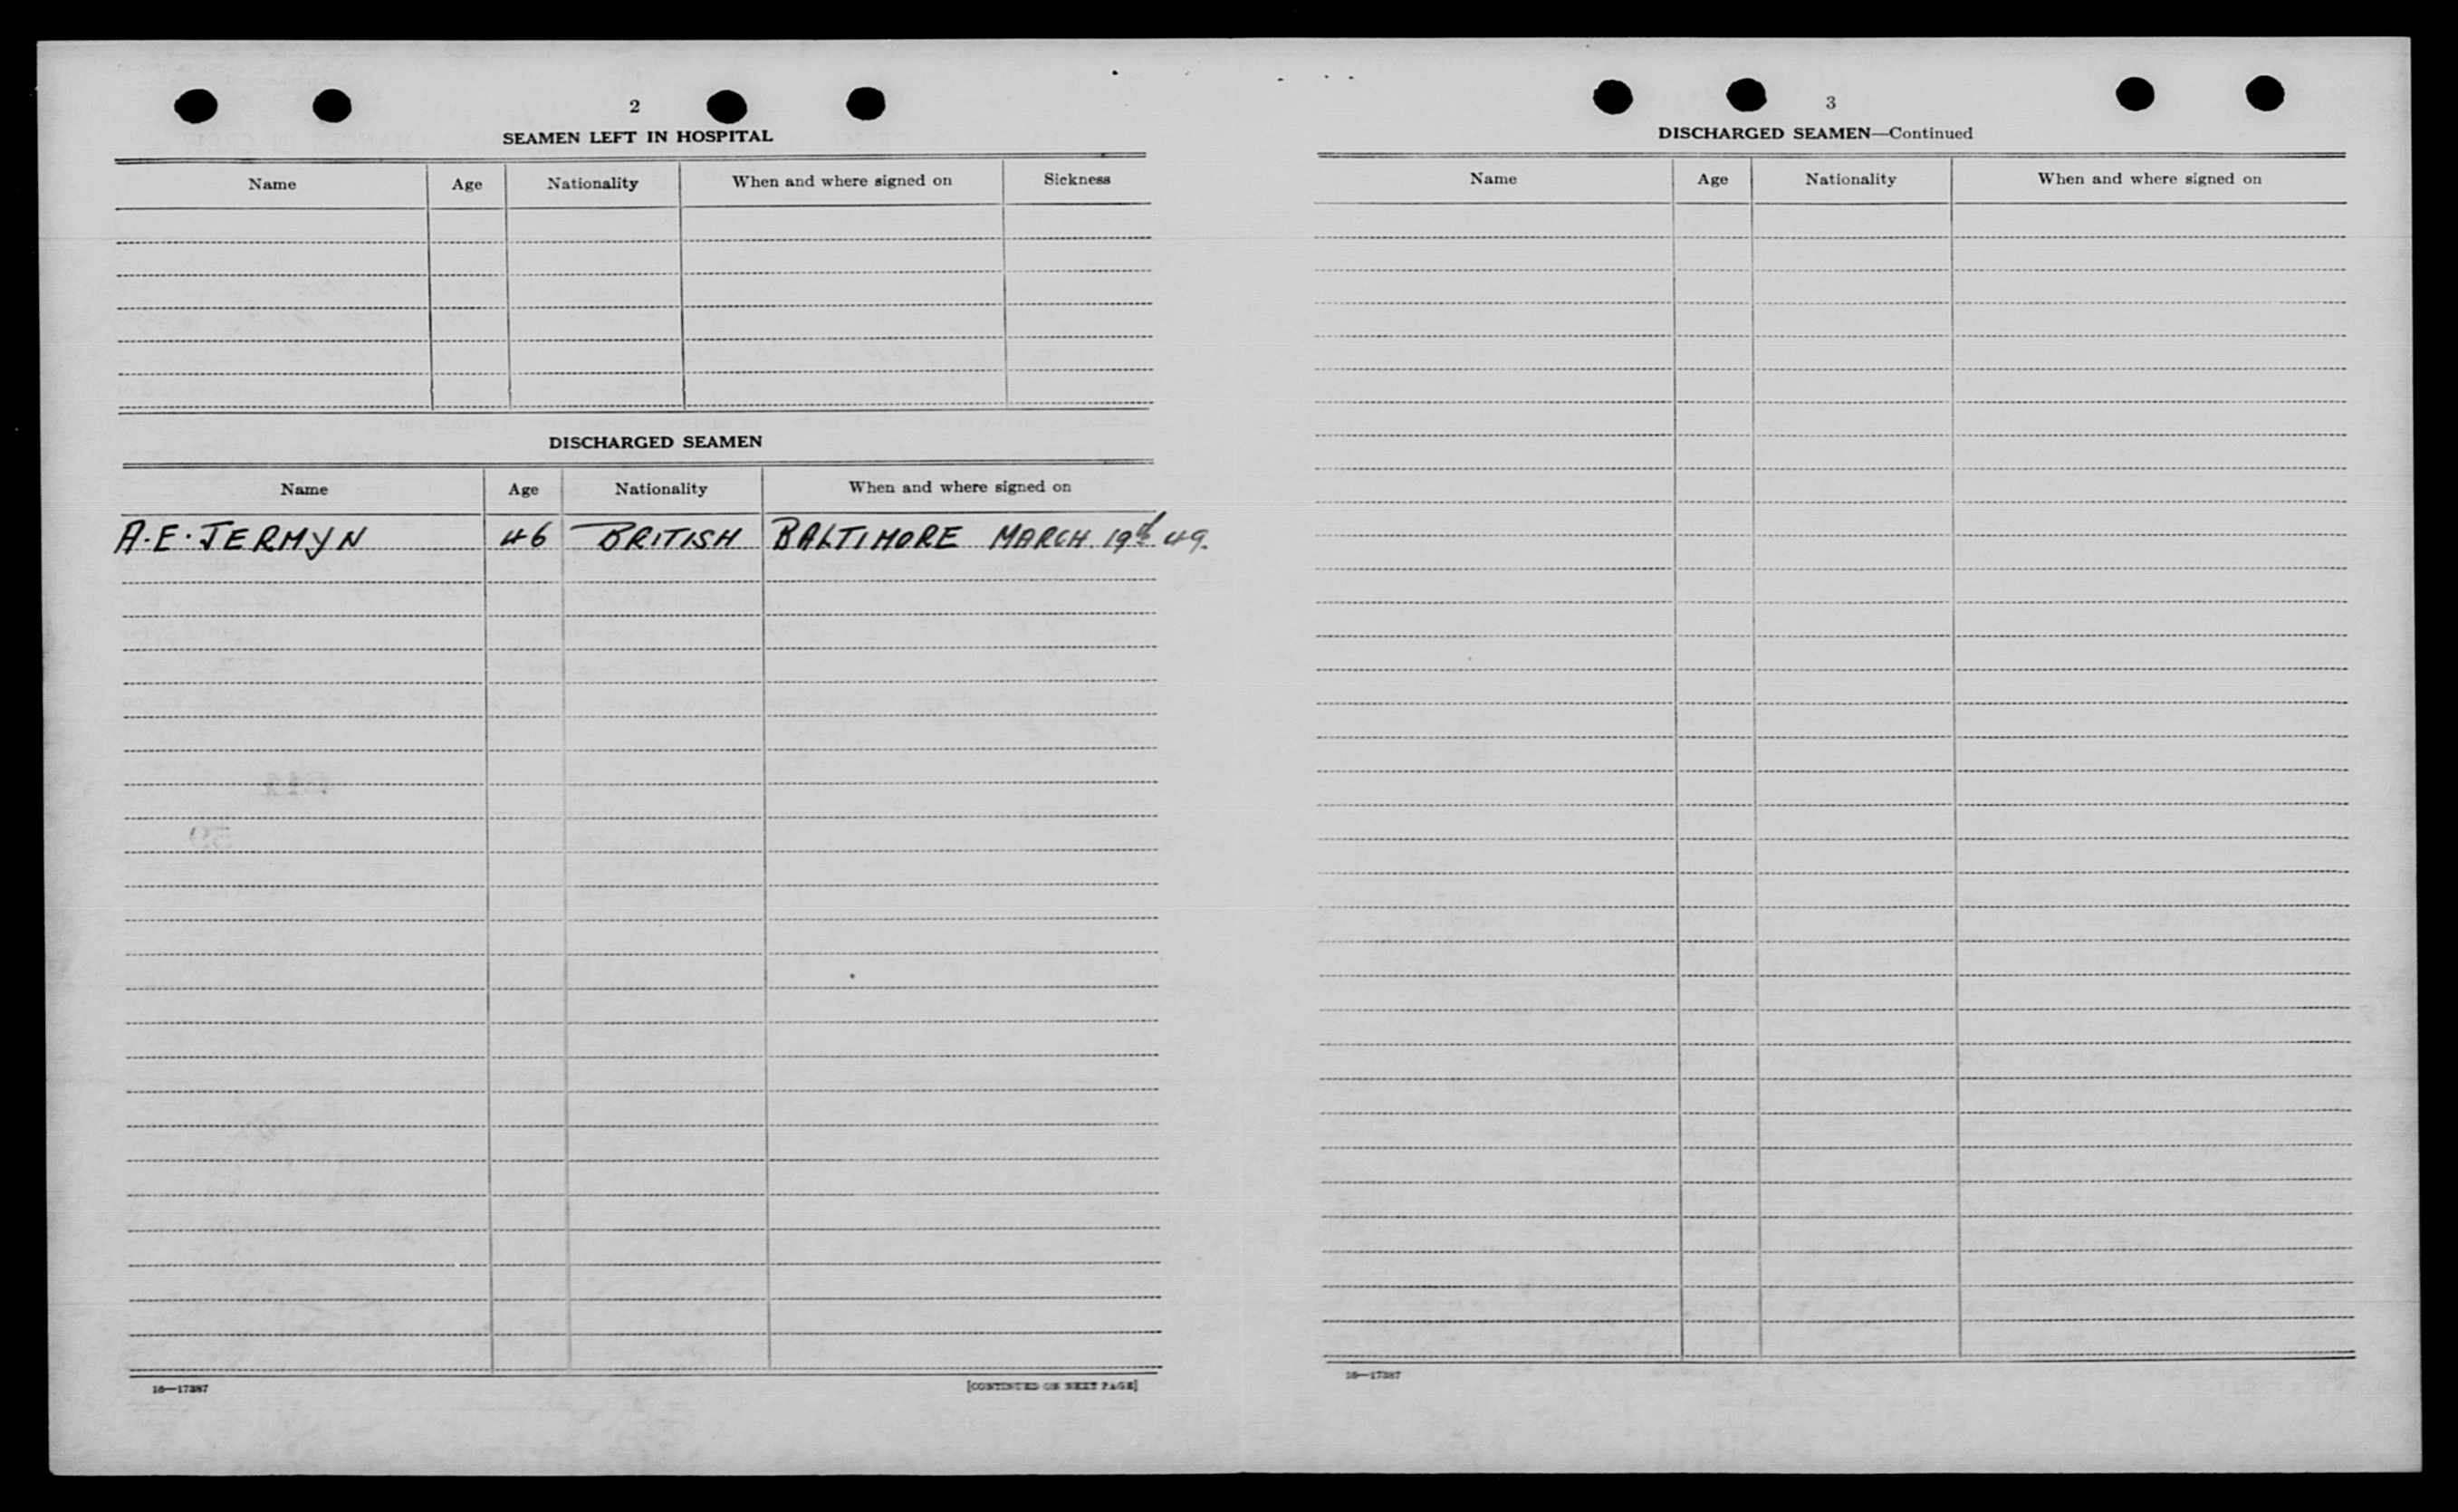 2
SEAMEN LEFT IN HOSPITAL
Name Age Nationality When and where signed on Sickness
DISCHARGED SEAMEN
Name Age Nationality When and where signed on
A. E. JERMYN 46 BRITISH BALTIMORE MARCH. 19th 49.
16—17387
[CONTINUED ON NEXT PAGE]
3
DISCHARGED SEAMEN—Continued
Name Age Nationality When and where signed on
16—17387